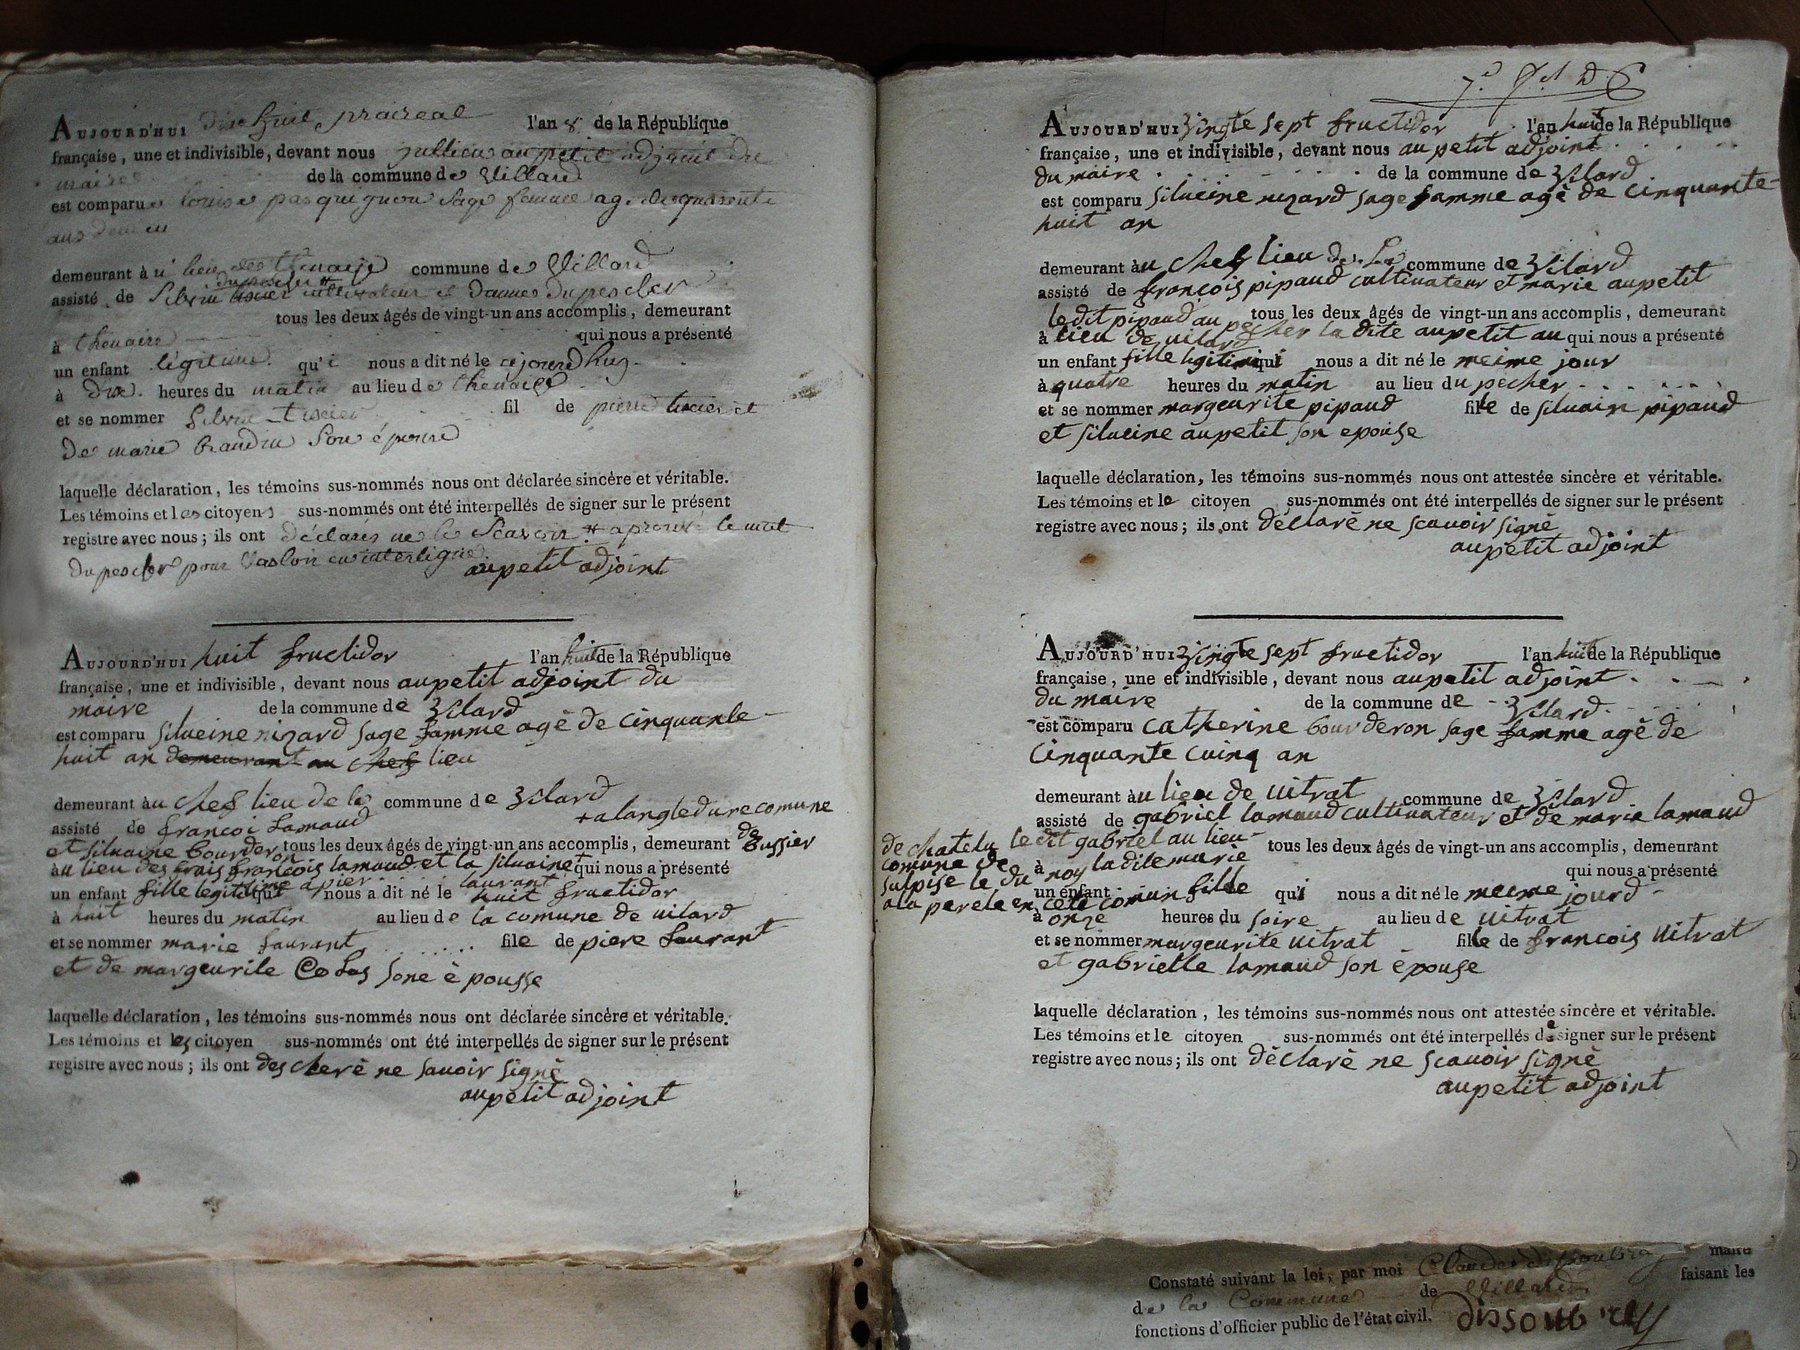 AUJOURD'HUI dixe huit prareal l'an 8e de la République
française, une et indivisible, devant nous jullien aupetit adjoint du
maire de la commune de Villard
est comparue louise pasquignon sage femme agé de quarente
ans
demeurant à u lieu de thenaize commune de Villard
dupescher #
assisté de Silvin cultivateur et dupescher
tous les deux âgés de vingt-un ans accomplis, demeurant
à thenaire qui nous a présenté
un enfant légitime qu'i nous a dit né le cejourdhuy
à dix heures du matin au lieu de thenaize
et se nommer Silvin tixier fil de pierre tixier et
de marie baudin son épouse
laquelle déclaration, les témoins sus-nommés nous ont déclarée sincère et véritable.
Les témoins et les citoyens sus-nommés ont été interpellés de signer sur le présent
registre avec nous; ils ont déclarés ne le scavoir # aprouvé le mot
dupescher pour valoir en interligne
aupetit adjoint
AUJOURD'HUI huit fructidor l'an huit de la République
française, une et indivisible, devant nous aupetit adjoint du
maire de la commune de vilard
est comparu silveine nizard sage famme agé de cinquante
huit an demeurant au chef lieu
demeurant à u chef lieu de la commune de vilard
+ a langle dure comune
assisté de francoi lamaud de Bussier
et silvaine bourderon tous les deux âgés de vingt-un ans accomplis, demeurant
à u lieu des frais françois lamaud et la silvaine + qui nous a présenté
un enfant fille legitime qui nous a dit né le huit fructidor
à huit heures du matin au lieu de la comune de vilard
et se nommer marie laurant file de piere laurant
et de margeurite colas sone épousse
laquelle déclaration, les témoins sus-nommés nous ont déclarée sincère et véritable.
Les témoins et les citoyen sus-nommés ont été interpellés de signer sur le présent
registre avec nous; ils ont descleré ne savoir signé
aupetit adjoint
AUJOURD'HUI vingte sept fructidor l'an huit de la République
française, une et indivisible, devant nous aupetit adjoint
du maire de la commune de vilard
est comparu silveine nizard sage famme agé de cinquante-
huit an
demeurant à u chef lieu de la commune de vilard
assisté de françois pipaud cultivateur et marie aupetit
le dit pipaud au pecher tous les deux âgés de vingt-un ans accomplis, demeurant
à lieu de vilard la dite aupetit au qui nous a présenté
un enfant fille legitime qui nous a dit né le meime jour
à quatre heures du matin au lieu du pecher
et se nommer margeurite pipaud fille de silvain pipaud
et silveine aupetit son epouse
laquelle déclaration, les témoins sus-nommés nous ont attestée sincère et véritable.
Les témoins et le citoyen sus-nommés ont été interpellés de signer sur le présent
registre avec nous; ils ont déclaré ne scavoir signé
aupetit adjoint
AUJOURD'HUI vingte sept fructidor l'an huit de la République
française, une et indivisible, devant nous aupetit adjoint
du maire de la commune de vilard
est comparu catherine bourderon sage famme agé de
cinquante cuinq an
demeurant à u lieu de vitrat commune de vilard
assisté de gabriel lamaud cultivateur et de marie lamaud
le dit gabriel au lieu tous les deux âgés de vingt-un ans accomplis, demeurant
de chatelu
comune de
à la dite marie qui nous a présenté
un enfant fille qui nous a dit né le meime jourd
à onze heures du soire au lieu de vitrat
et se nommer margeurite vitrat fille de francois vitrat
et gabrielle lamaud son epouse
laquelle déclaration, les témoins sus-nommés nous ont attestée sincère et véritable.
Les témoins et le citoyen sus-nommés ont été interpellés de signer sur le présent
registre avec nous; ils ont déclaré ne scavoir signé
aupetit adjoint
Constaté suivant la loi, par moi maire
de la Commune de Villard faisant les
fonctions d'officier public de l'état civil.